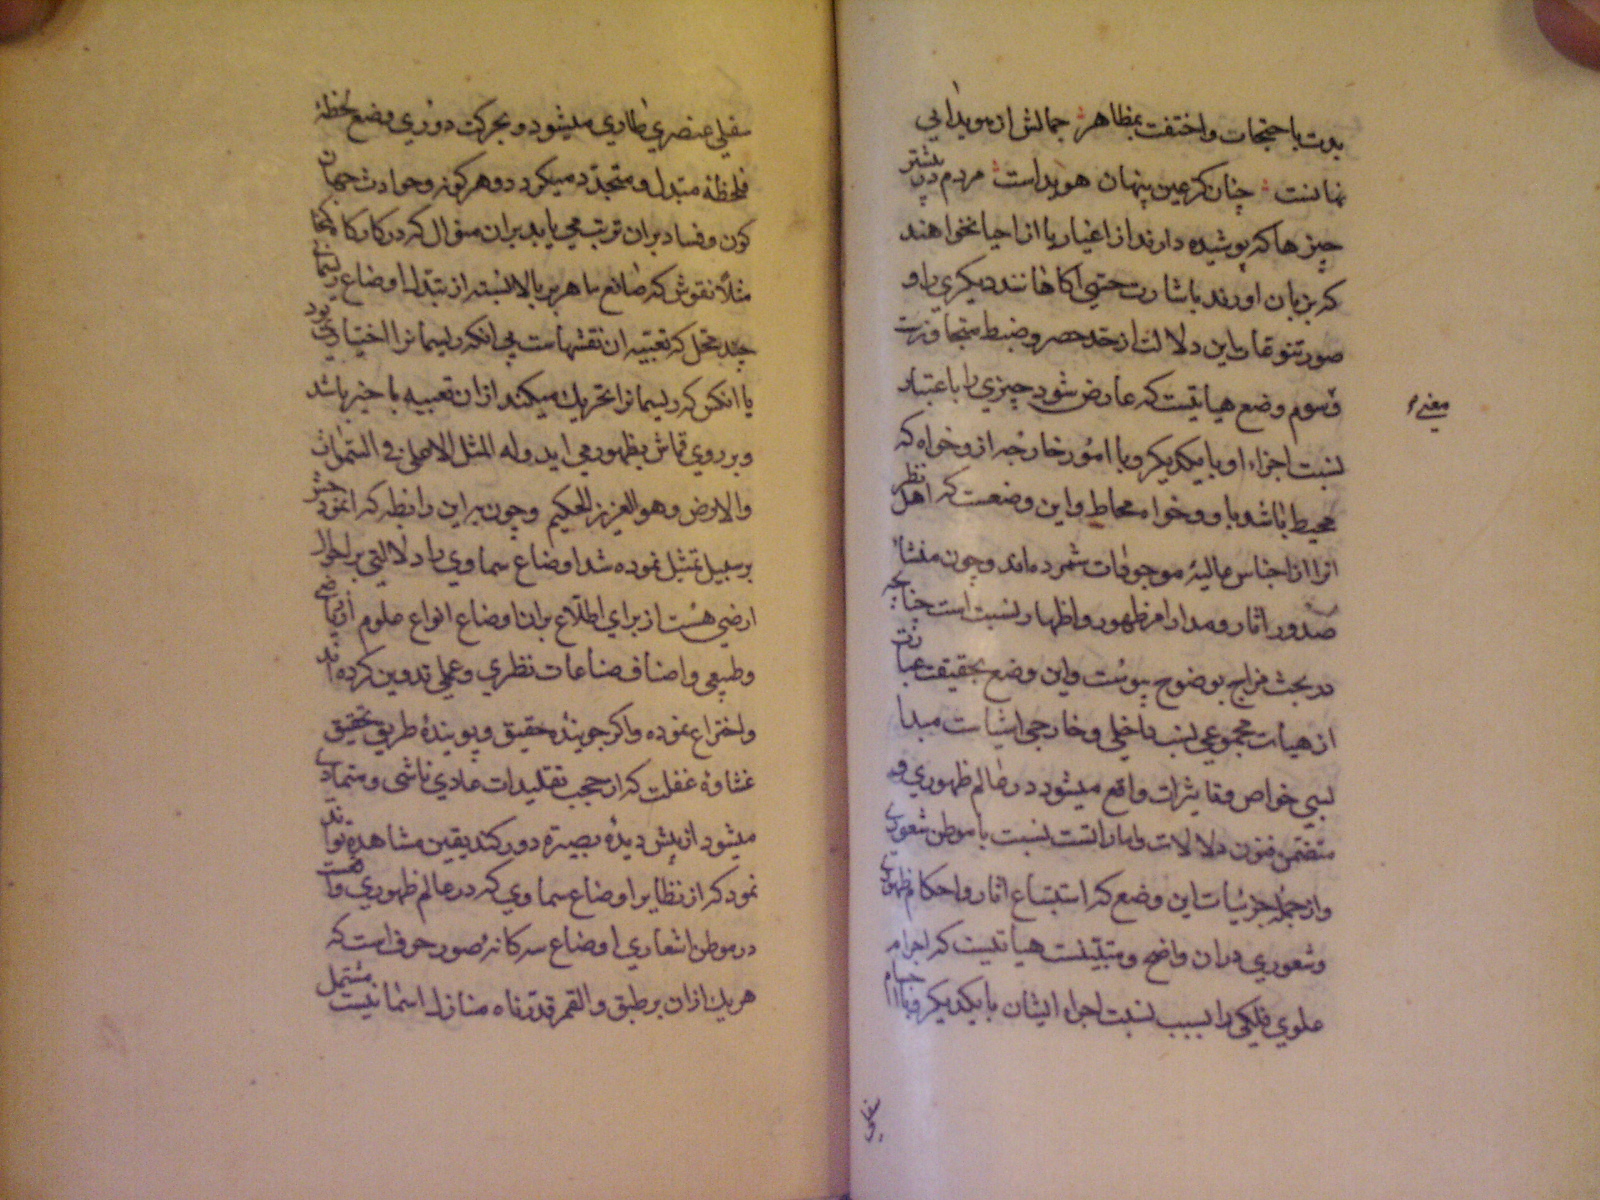 بدت باحتجابات واختفت بمظاهر جمالش از هویدایی
نمانست چنان کز عین پنهان هویداست مردم در بیشتر
چیزها که پوشیده دارند از اغیار یا از احیا نخواهند
که بزبان اورند باشارت حتی اکاهانند دیکری را و
صور تنوعات این دلالت از حد حصر و ضبط متجاوزست
قسم سوم وضع هیاتیست که عارض شود چیزی را باعتبار
نسبت اجزاء او با یکدیکر و با امور خارجه ازو خواه که
محیط باشد باو و خواه محاط و این وضعست که اهل نظر
انرا از اجناس عالیهٔ موجودات شمرده اند و چون منشاء
صدور اثار و مدار امر ظهور و اظهار نسبت است چنانچه
در بحث مزاج بوضوح پیوست و این وضع بحقیقت عبارت
از هیأت مجموعی نسب داخلی و خارجی اشیا ست مبدا
بسی خواص و تاثیرات واقع میشود در عالم ظهوری و
متضمن فنون دلالات و اماراتست نسبت با موطن شعوری
و از جمله جزئیات این وضع که استتباع اثار و احکام ظهوری
و شعوری دران واضح و متبیّنست هیاتیست که اجرام
علوی فلکی را بسبب نسبت اجزاء ایشان با یکدیکر و با اجسام
سفلی
سفلی عنصری طاری میشود و بحرکت دوری وضع لحظهٔ
فلحظة متبدل و متجدد میکردد و هر کونه حوادث جهان
کون و فساد بران ترتب می یابد بران منوال که در کارکاه کمخا
مثلاً نقوش که صانع ماهر بر بالا نشسته از تبدل اوضاع ریسمانی
چند محل که تعبیه ان نقشهاست بی انکه ریسمانرا اختیاری بود
یا انکس که ریسمانرا تحریک میکند ازان تعبیه با خبر باشد
و بر روی قماش بظهور می اید وله المثل الاعلی فی السموات
والارض وهو العزیز الحکیم و چون براین رابطه که انموذجش
بر سبیل تمثیل نموده شد اوضاع سماوی را دلالتی بر احوال
ارضی هست از برای اطلاع بران اوضاع انواع علوم از ریاضی
و طبیعی و اصناف صناعات نظری و عملی تدوین کرده اند
و اختراع نموده و اکر جویندهٔ حقیق و پویندهٔ طریق تحقیق
غشاوهٔ غفلت که از حجب تقلیدات عادی ناشی و متمادی
میشود از پیش دیدهٔ بصیرة دور کند بیقین مشاهده تواند
نمود که از نظایر اوضاع سماوی که در عالم ظهوری واقعست
در موطن اشعاری اوضاع سه کانهٔ صور حرف است که
هر یک ازان بر طبق والقمر قدرناه منازل اسمانیست مشتمل